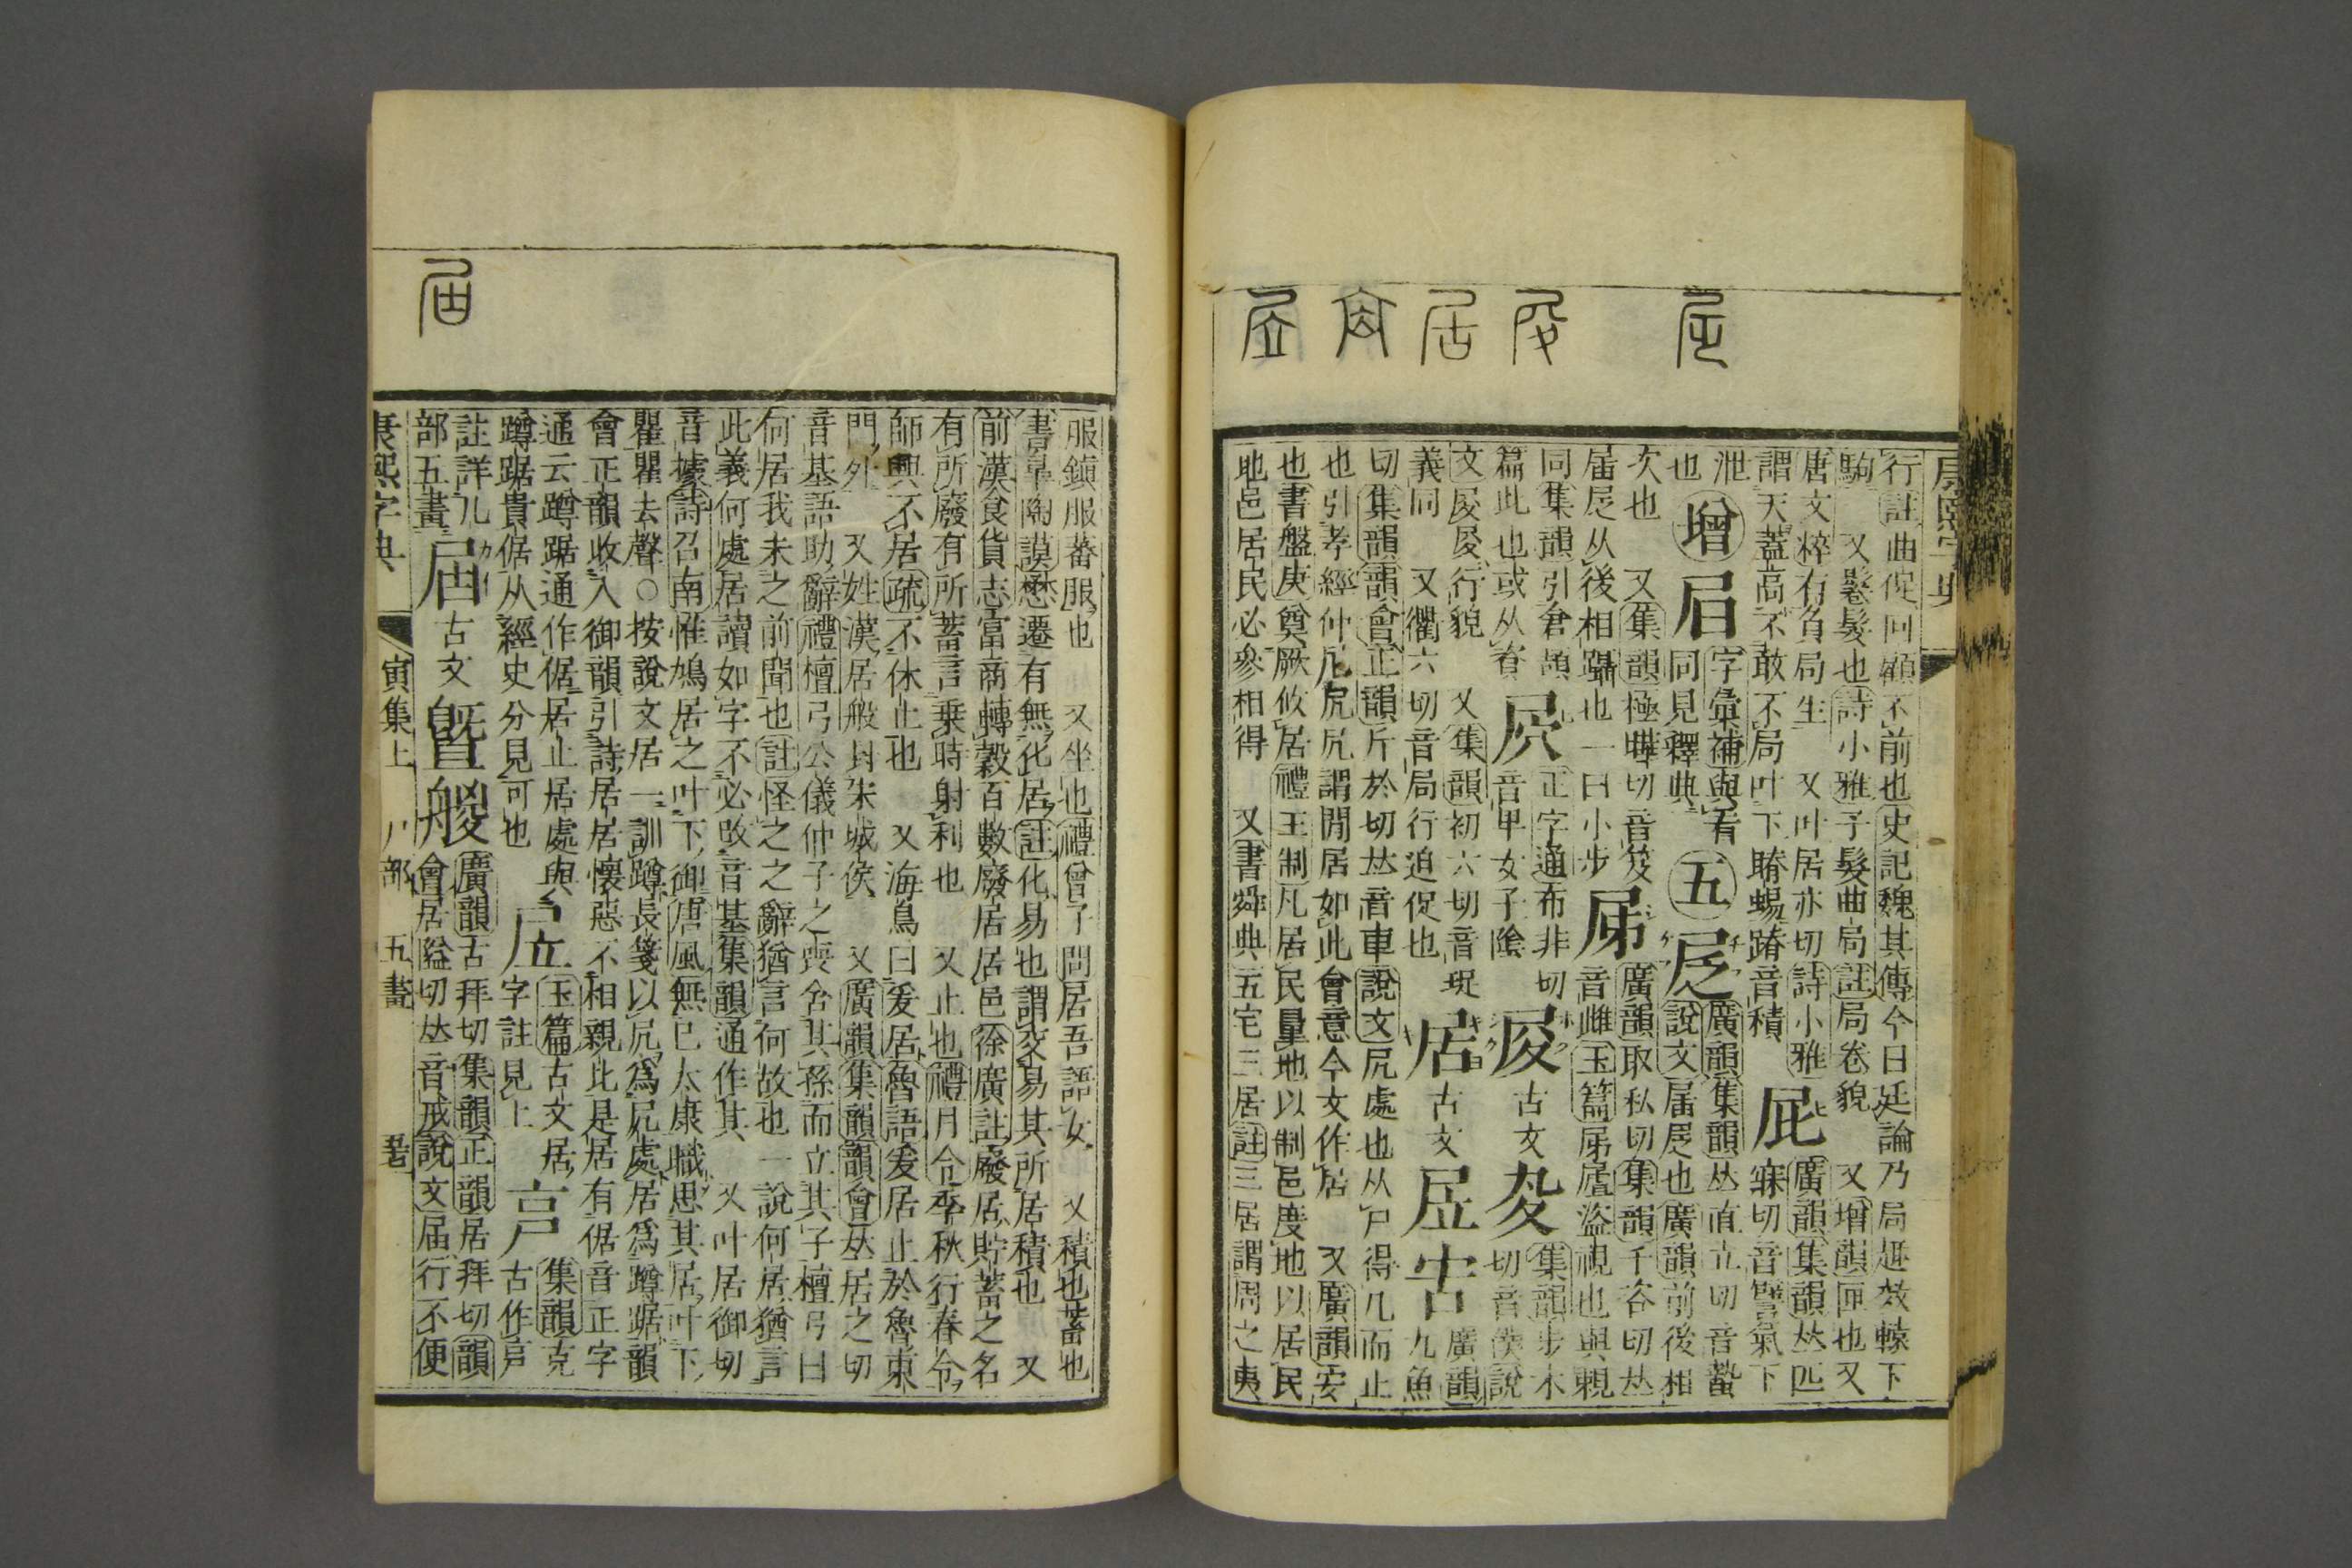 行註曲促回顧不前也史記魏其傳今日廷論乃局趣效轅下
駒 又鬈髮也詩小雅予髮曲局註局卷貌 又增韻匣也又
唐文粹有角局生 又叶居亦切詩小雅
謂天蓋高不敢不局叶下蹐蜴蹐音積
屁
廣韻集韻𠀤匹
寐切音譬氣下
泄
也
增
𡱂
字彙補與𥄳
同見釋典
五
𡰫
廣韻集韻𠀤直立切音蟄
說文届𡰫也廣韻前後相
次也 又集韻極曄切音笈
届𡰫从後相躡也一曰小步
屌
廣韻取私切集韻千咨切𠀤
音雌玉篇屌𡳐盜視也與覰
同集韻引倉頡
篇此也或从脊
屄
正字通布非切
音卑女子陰
𡰯
古文
㕟
集韻步木
切音僕說
文𡰯𡰯行貌 又集韻初六切音珿
義同 又衢六切音局行迫促也
居
古文
㞐
𡧗
廣韻
九魚
切集韻韻會正韻斤於切𠀤音車說文凥處也从尸得几而止
也引孝經仲尼凥凥謂閒居如此會意今文作居 又廣韻安
也書盤庚奠厥攸居禮王制凡居民量地以制邑度地以居民
地邑居民必參相得 又書舜典五宅三居註三居謂周之夷
服鎭服蕃服也 又坐也禮曾子問居吾語女 又積也蓄也
書皐陶謨懋遷有無化居註化易也謂交易其所居積也 又
前漢食貨志富商轉轂百數廢居居邑徐廣註廢居貯蓄之名
有所廢有所蓄言乗時射利也 又止也禮月令季秋行春令
師興不居疏不休止也 又海鳥曰爰居魯語爰居止於魯東
門外 又姓漢居般封朱城侯 又廣韻集韻韻會𠀤居之切
音基語助辭禮檀弓公儀仲子之喪舍其孫而立其子檀弓曰
何居我未之前聞也註怪之之辭猶言何故也一說何居猶言
此義何處居讀如字不必改音基集韻通作其 又叶居御切
音據詩召南惟鳩居之叶下御唐風無已太康職思其居叶下
瞿瞿去聲○按說文居一訓蹲長箋以凥爲凥處居爲蹲踞韻
會正韻收入御韻引詩居居懷惡不相親比是居有倨音正字
通云蹲踞通作倨居止居處與
蹲踞貴倨从經史分見可也
㞐
玉篇古文居
字註見上
𡧗
集韻克
古作𡧗
註詳几
部五畫
届
古文
曁
艐
廣韻古拜切集韻正韻居拜切韻
會居隘切𠀤音戒說文届行不便
康熙字典 寅集上 尸部 五畫